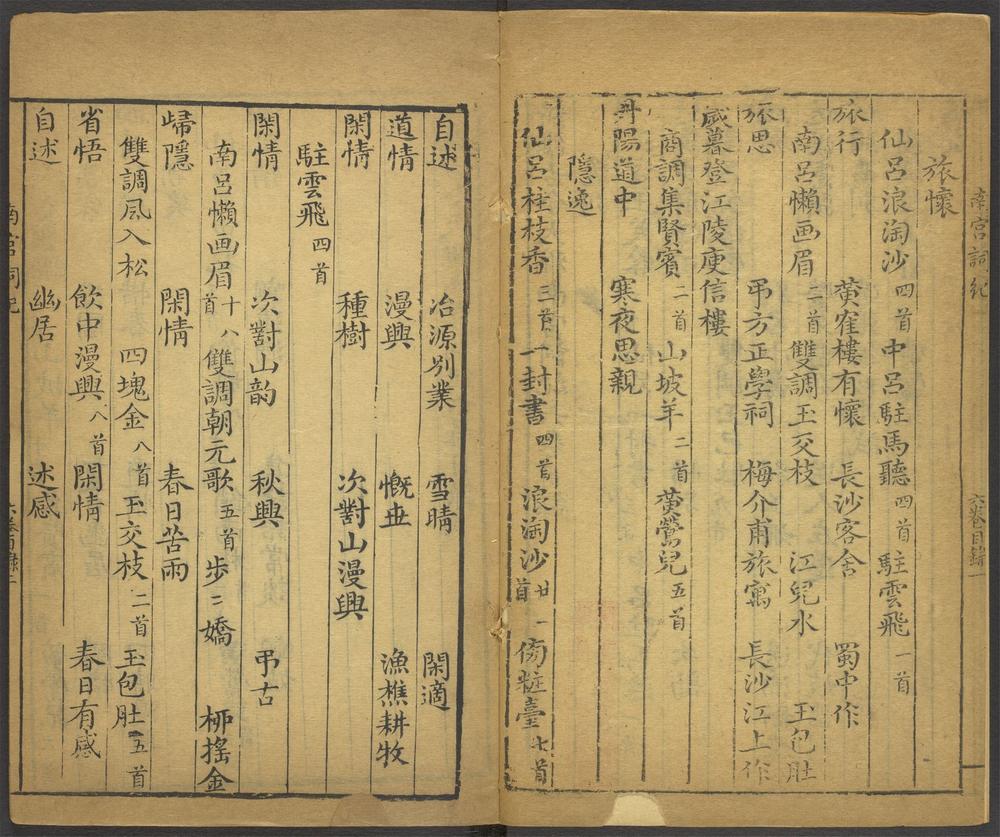 南宮詞紀 六卷目錄一
旅懷
仙呂浪淘沙四首 中呂駐馬聽四首 駐雲飛一首
旅行 黄隺樓有懷 長沙客舍 蜀中作
南呂懶画眉二首 雙調玉交枝 江兒水 玉包肚
旅思 弔方正學祠 梅介甫旅寓 長沙江上作
歲暮登江陵庾信樓
商調集賢賔二首 山坡羊二首 黄鶯兒五首
丹陽道中 寒夜思親
隱逸
仙呂桂枝香三首 一封書四首 浪淘沙廿一首 傍粧臺七首
自述 冶源別業 雪晴 閑適
道情 漫興 慨世 漁樵耕牧
閑情 種樹 次對山漫興
駐雲飛四首
閑情 次對山韵 秋興 弔古
南呂懶画眉十八首 雙調朝元歌五首 步二嬌 栁搖金
歸隱 閑情 春日苦雨
雙調風入松 四塊金八首 玉交枝二首 玉包肚五首
省悟 飲中漫興八首 閑情 春日有感
自述 幽居 述感
南宮詞紀 六卷目錄二